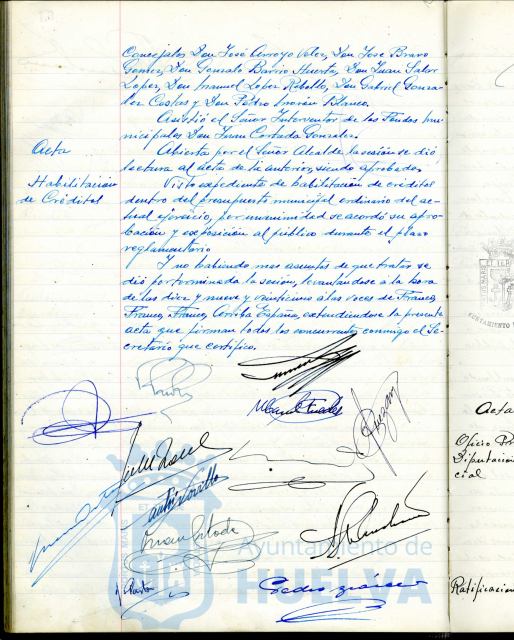 Concejales Don José Arroyo Velez, Don Jose Bravo
Gomez, Don Gonzalo Barrio Huerta, Don Juan
Lopez, Don Manuel Lopez Rebollo, Don Gabriel Gonza-
lez Costas y Don Pedro Morán Blanco.
Asistió el Señor Interventor de los Fondos mu-
nicipales Don Juan Cortada Gonzalez.
Acta
Abierta por el Señor Alcalde la sesión se dió
lectura al acta de la anterior, siendo aprobada.
Habilitación
de Créditos
Visto expediente de habilitación de créditos
dentro del presupuesto municipal ordinario del ac-
tual ejercicio, por unanimidad se acordó su apro-
bación y exposición al público durante el plazo
reglamentario.
Y no habiendo mas asuntos de que tratar se
dió por terminada la sesión, levantandose a la hora
de las diez y nueve y veinticinco a las voces de Franco,
Franco, Franco, Arriba España, extendiendose la presente
acta que firman todos los concurrentes conmigo el Se-
cretario que certifico.
Acta
Oficio
Diputación
cial
Ayuntamiento de
HUELVA
Ratificación